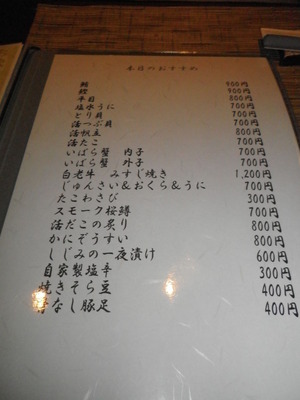 本日のおすすめ
鯛 900円
鰹 900円
平目 800円
塩水うに 700円
とり貝 700円
活つぶ貝 700円
活帆立 800円
活たこ 700円
いばら蟹 内子 700円
いばら蟹 外子 700円
白老牛 みすじ焼き 1,200円
じゅんさい＆おくら＆うに 700円
たこわさび 300円
スモーク桜鱒 700円
活だこの炙り 800円
かにぞうすい 800円
しじみの一夜漬け 600円
自家製塩辛 300円
焼きそら豆 400円
骨なし豚足 400円